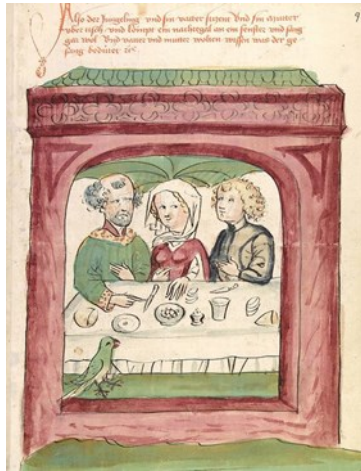 Also der Jungeling vnd sin vatter sitzent vnd sin mutter
vber tisch vnd kompt ein nachtegal an ein fenster vnd sang
gar wol vnd vatter vnd mutter wolten wissen was der ge
sang bedüret
9